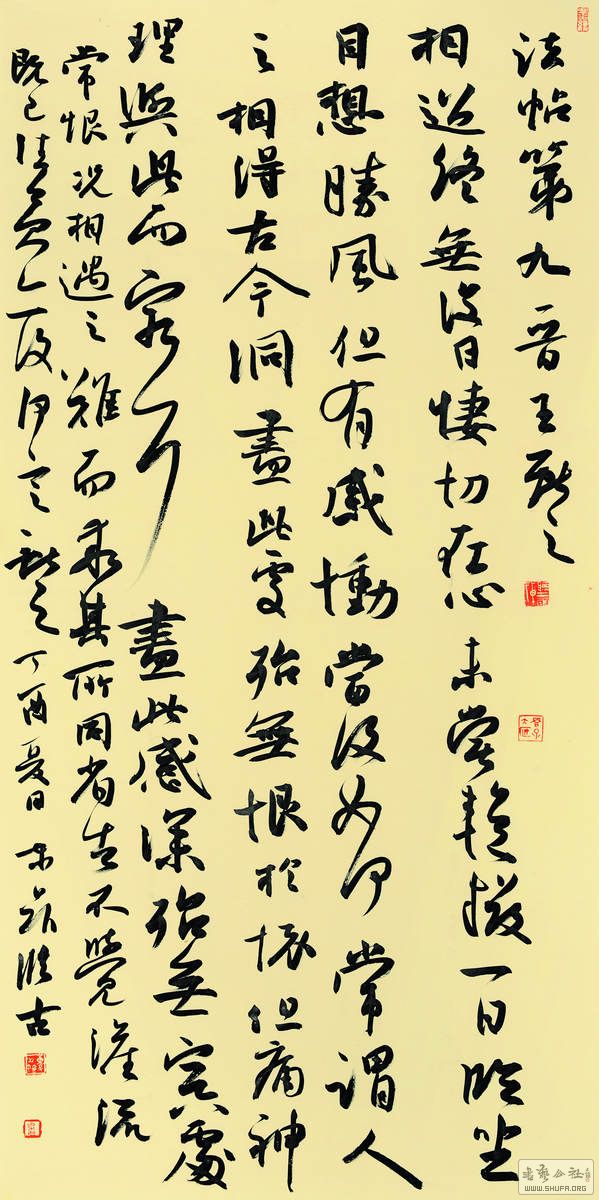 法帖第九晉王獻之
相過終無復日悽切在心未嘗輒掇一日臨坐
目想勝風但有感慟當復如何常謂人
之相得古今洞盡此處殆無恨於懷但痛神
理與此而窮耳盡此感深殆無冥處
常恨況相遇之難而乖其所同省告不覺灌流
既已往矣亦復何言獻之丁酉夏日臨古
書藝公社
WWW.SHUFA.ORG